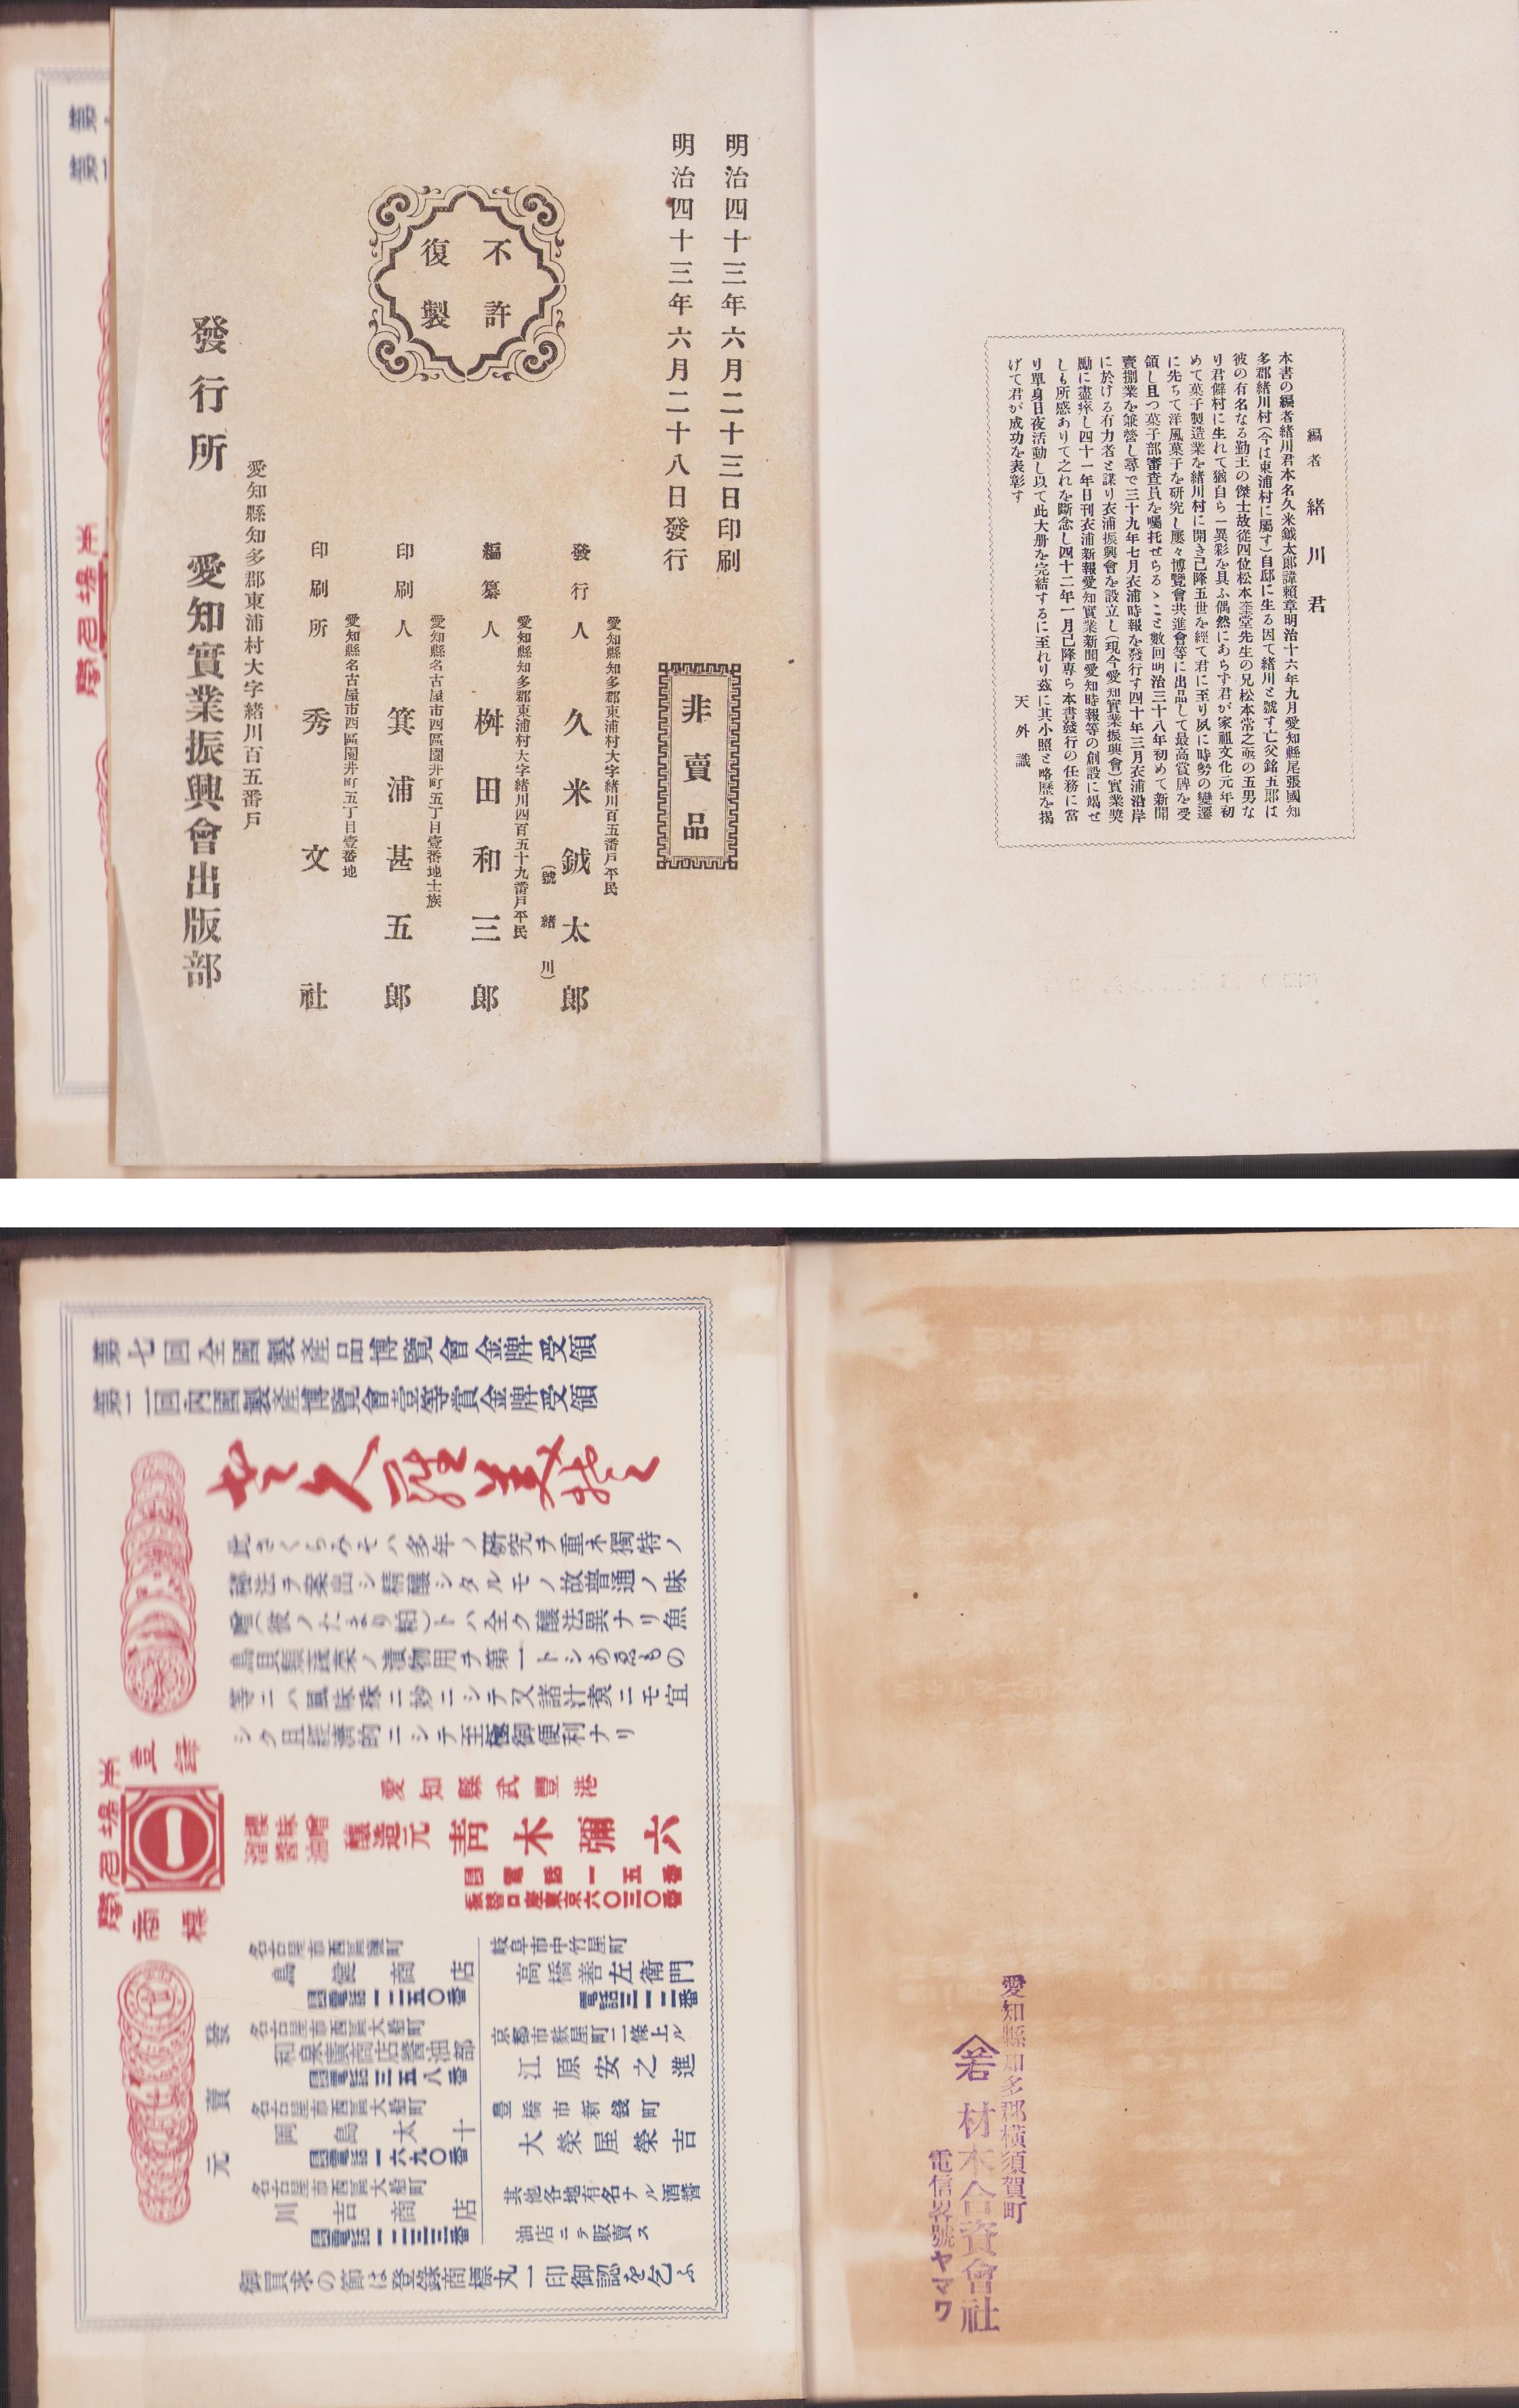 編者 緒川君
本書の編者緒川君本名久米鉞太郎諱賴章明治十六年九月愛知縣尾張國知
多郡緒川村(今は東浦村に屬す)自邸に生る因て緒川と號す亡父銘五郎は
彼の有名なる勤王の傑士故從四位松本奎堂先生の兄松本常之亟の五男な
り君僻村に生れて猶自ら一異彩を具ふ偶然にあらず君が家祖文化元年初
めて菓子製造業を緒川村に開き己降五世を經て君に至り夙に時勢の變遷
に先ちて洋風菓子を研究し屢々博覽會共進會等に出品して最高賞牌を受
領し且つ菓子部審査員を囑托せらるゝこと數回明治三十八年初めて新聞
賣捌業を兼營し尋で三十九年七月衣浦時報を發行す四十年三月衣浦沿岸
に於ける有力者と謀り衣浦振興會を設立し(現今愛知實業振興會)實業奬
勵に盡瘁し四十一年日刊衣浦新報愛知實業新聞愛知時報等の創設に竭せ
しも所感ありて之れを斷念し四十二年一月己降專ら本書發行の任務に當
り單身日夜活動し以て此大册を完結するに至れり茲に其小照と略歷を揭
げて君が成功を表彰す
天外識
明治四十三年六月二十三日印刷
明治四十三年六月二十八日發行
非賣品
不許
復製
愛知縣知多郡東浦村大字緒川百五番戶平民
發行人 久米鉞太郎
(號緒川)
愛知縣知多郡東浦村大字緒川四百五十九番戶平民
編纂人 桝田和三郎
愛知縣名古屋市西區園井町五丁目壹番地士族
印刷人 箕浦甚五郎
愛知縣名古屋市西區園井町五丁目壹番地
印刷所 秀文社
愛知縣知多郡東浦村大字緒川百五番戶
發行所 愛知實業振興會出版部
第七回全國製產品博覽會金牌受領
第二回內國製產博覽會壹等賞金牌受領
此さくらみそハ多年ノ研究ヲ重ネ獨特ノ
釀法ヲ案出シ精釀シタルモノ故普通ノ味
噌(彼ノたまり粕)トハ全ク釀法異ナリ魚
鳥貝類蔬菜ノ漬物用ヲ第一トシあゑもの
等ニハ風味殊ニ妙ニシテ又諸汁煮ニモ宜
シク且經濟的ニシテ至極御便利ナリ
登錄
一
商標
愛知縣武豐港
釀造元 靑木彌六
電話一五番
振替口座東京六〇三〇番
發賣元
商店
電話一二五〇番
名古屋市西區大船町
和泉屋商店醬油部
電話三五八番
名古屋市西區大船町
岡島太十
電話一六九〇番
名古屋市西區大船町
川吉商店
電話一二三三番
岐阜市中竹屋町
高橋善左衛門
電話三一二番
京都市麩屋町二條上ル
江原安之進
豐橋市新錢町
大榮屋榮吉
其他各地有名ナル酒醬
油店ニテ販賣ス
御買求の節は登錄商標丸一印御認を乞ふ
愛知縣知多郡橫須賀町
若 材木合資會社
電信畧號ヤマワ